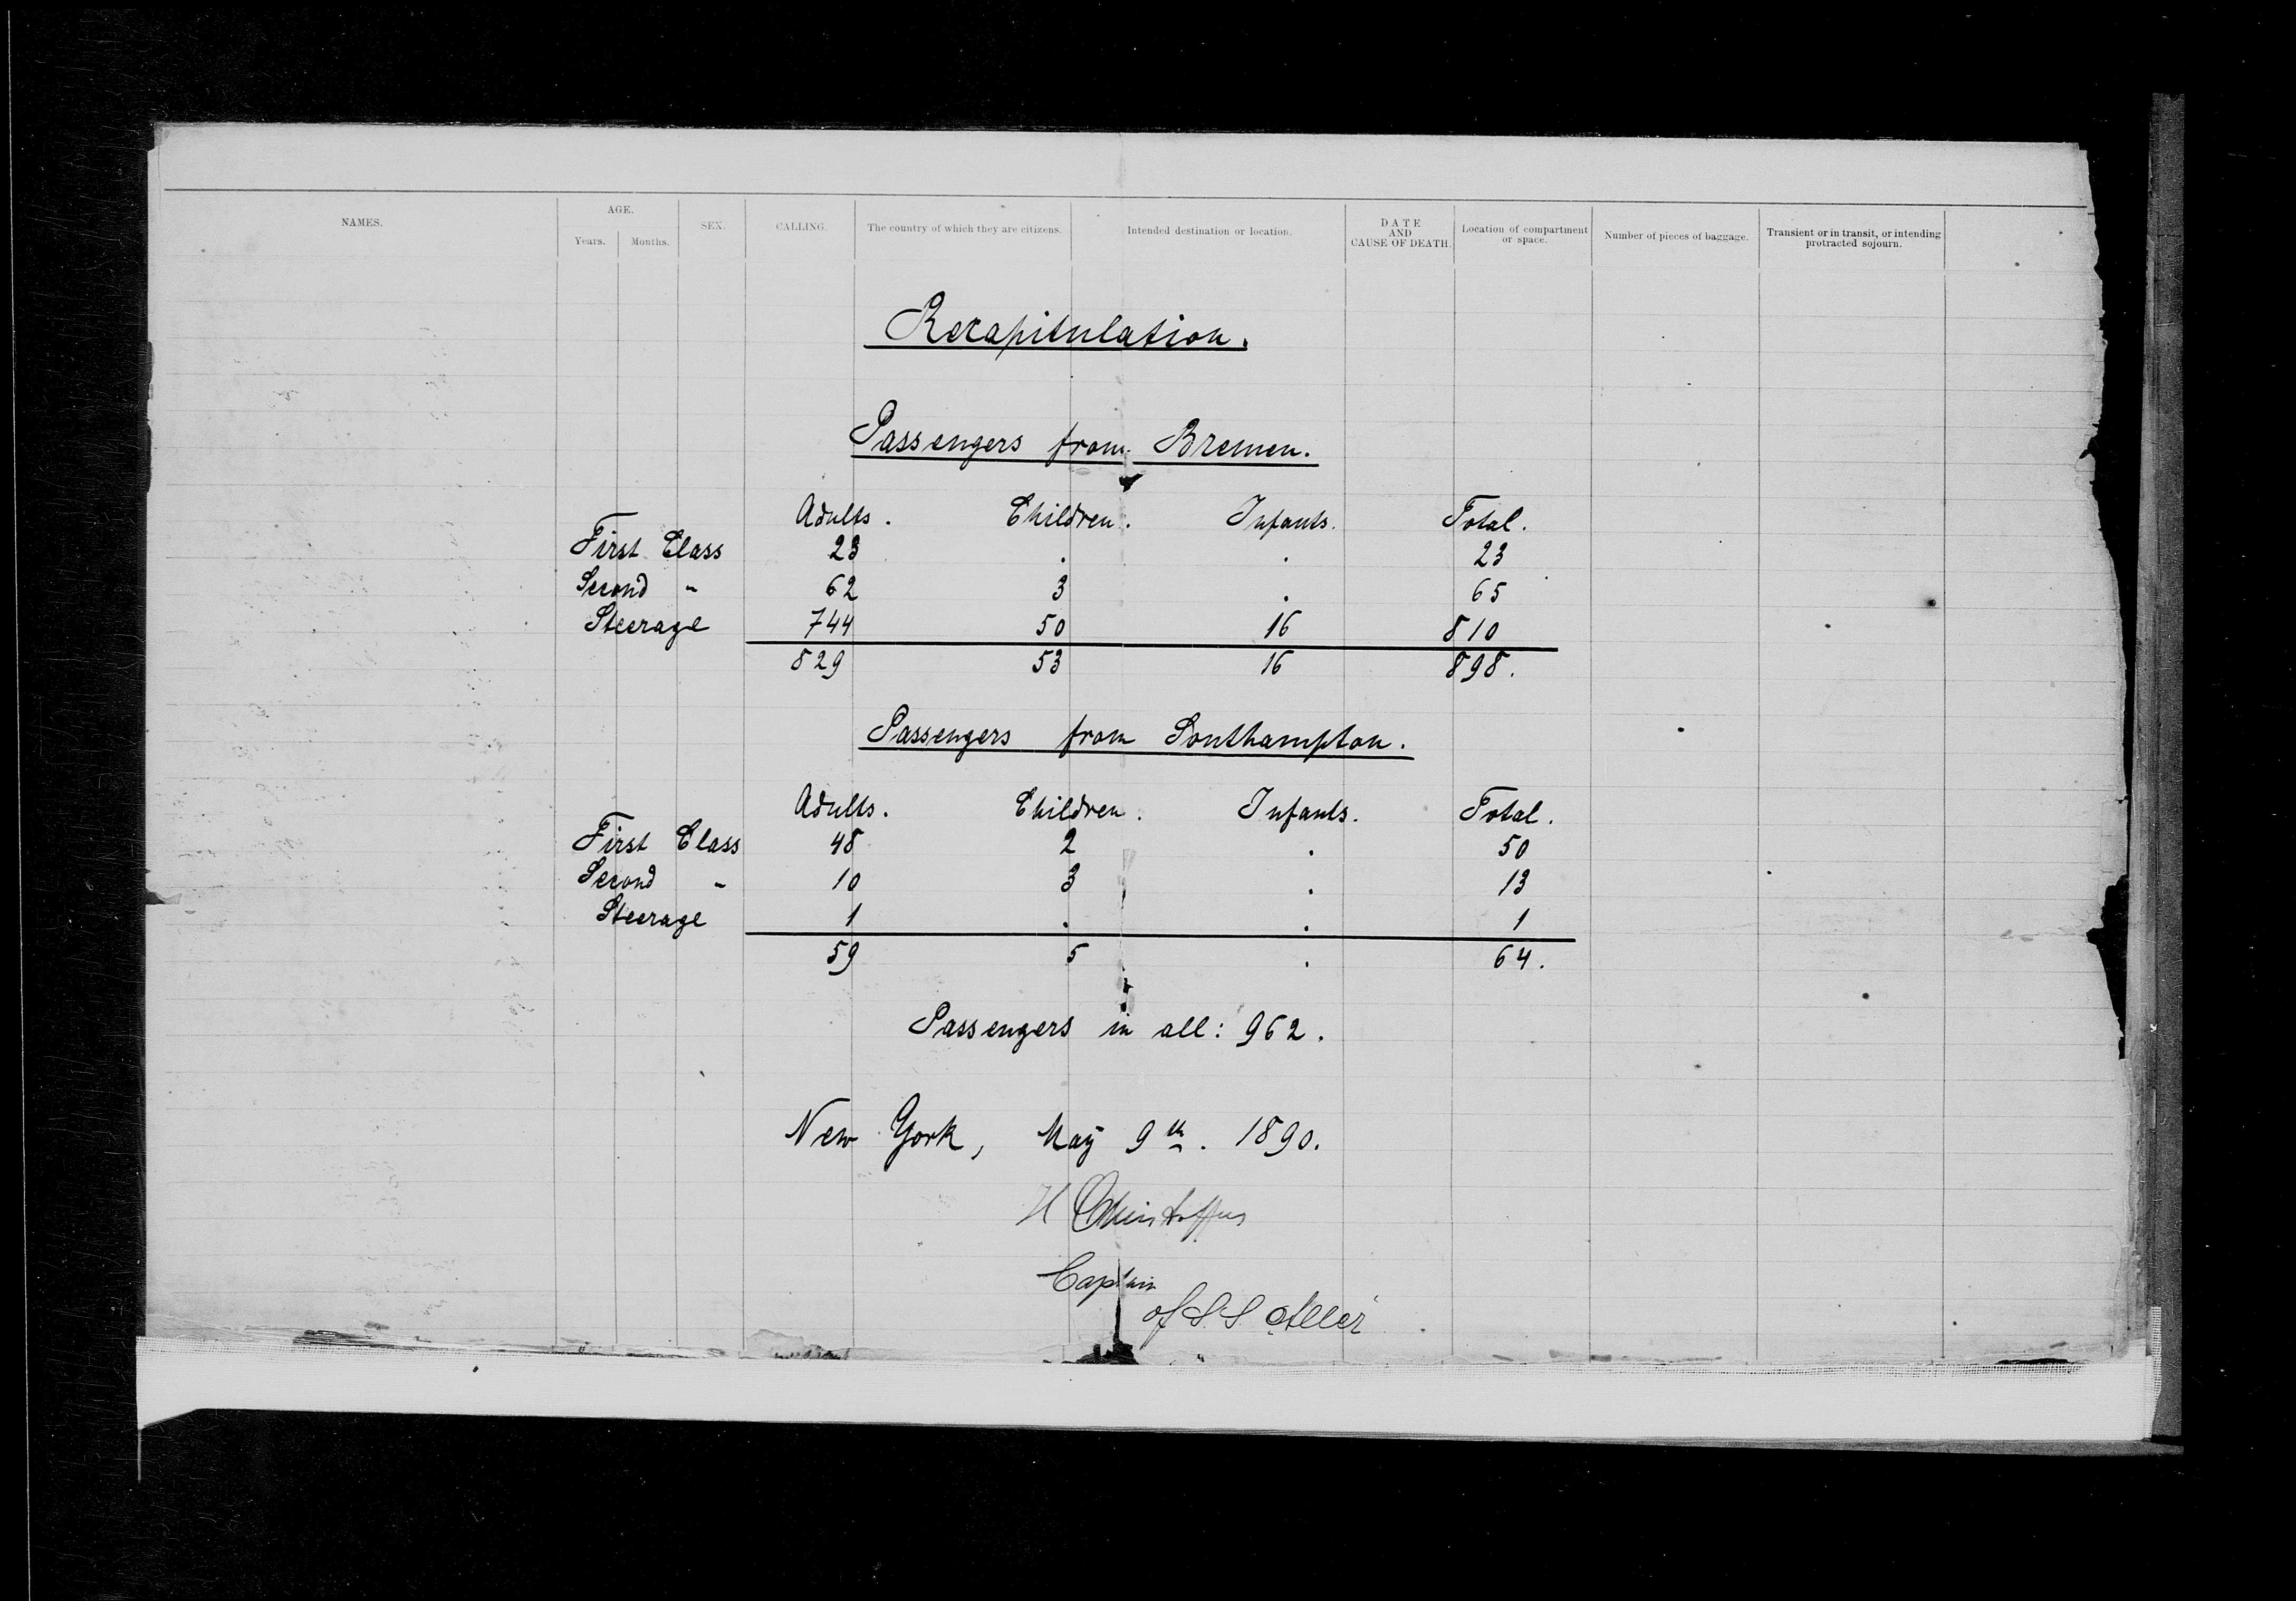 NAMES. AGE. SEX. CALLING. The country of which they are citizens. Intended destination or location. DATE AND CAUSE OF DEATH. Location of compartment or space. Number of pieces of baggage. Transient or in transit, or intending protracted sojourn.
Years. Months.
Recapitulation.
Passengers from Bremen.
Adults. Children. Infants. Total.
First Class 23 . . 23
Second " 62 3 . 65
Steerage 744 50 16 810
829 53 16 898.
Passengers from Southampton.
Adults. Children. Infants. Total.
First Class 48 2 . 50
Second " 10 3 . 13
Steerage 1 . . 1
59 5 . 64.
Passengers in all: 962.
New York, May 9th. 1890.
H Christoffers
Captain
of S.S Aller